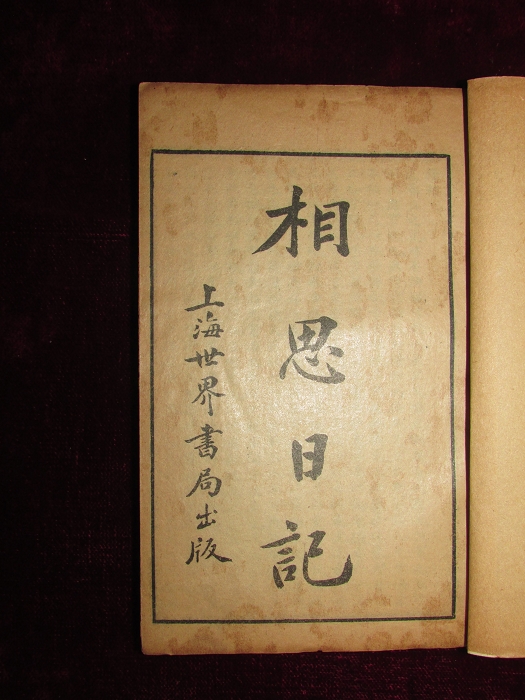 相思日記
上海世界書局出版